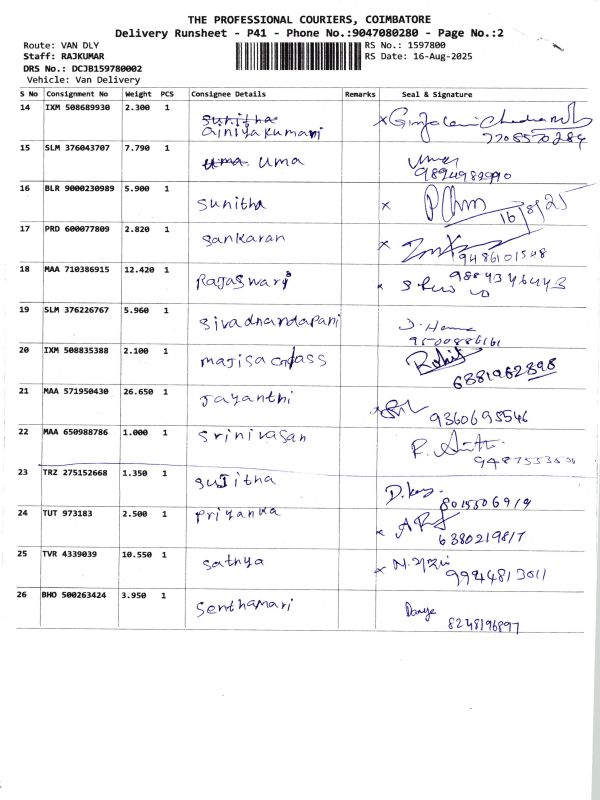 THE PROFESSIONAL COURIERS, COIMBATORE
Delivery Runsheet - P41 - Phone No.:9047080280 - Page No.:2
Route: VAN DLY
RS No.: 1597800
Staff: RAJKUMAR
RS Date: 16-Aug-2025
DRS No.: DCJB159780002
Vehicle: Van Delivery
S No Consignment No Weight PCS Consignee Details Remarks Seal & Signature
14 IXM 508689930 2.300 1 Sunitha
Ainiyakumari
7708570289
15 SLM 376043707 7.790 1 uma uma
16 BLR 9000230989 5.900 1 sunitha
16/8/25
17 PRD 600077809 2.820 1 sankaran
9486101548
18 MAA 710386915 12.420 1 Rajaswari
9884346443
19 SLM 376226767 5.960 1 Sivadhandapani
J. Hema
9500886161
20 IXM 508835388 2.100 1 majisa
Rohit
6381962898
21 MAA 571950430 26.650 1 Jayanthi
9360695546
22 MAA 650988786 1.000 1 srinivasan
23 TRZ 275152668 1.350 1 sujitha
8015506919
24 TUT 973183 2.500 1 priyanka
6380219817
25 TVR 4339039 10.550 1 sathya
9944813011
26 BHO 500263424 3.950 1 senthamari
8248196897